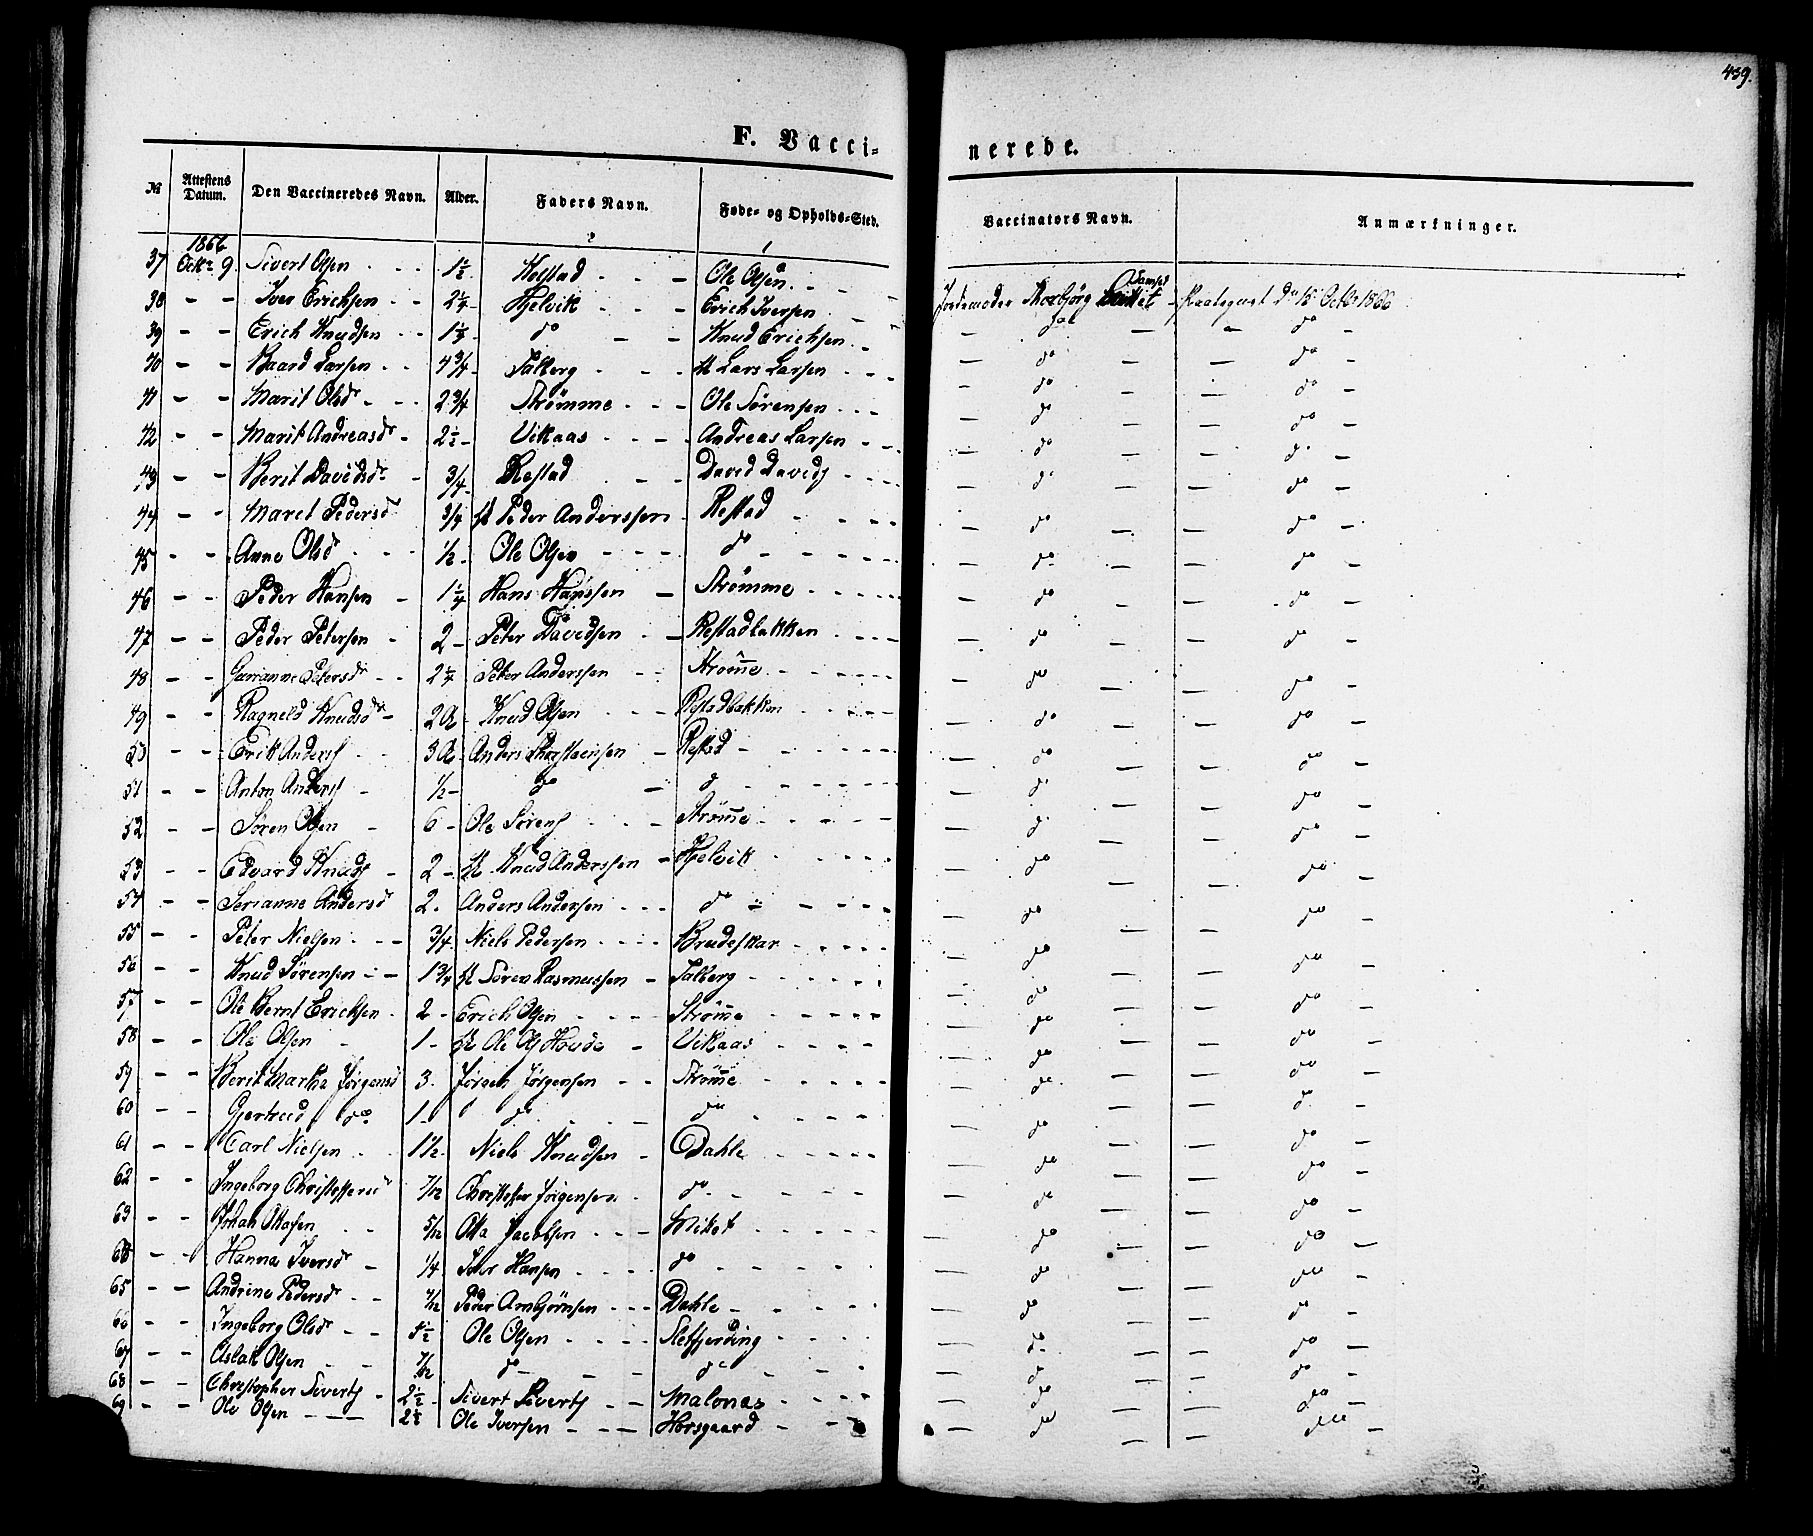 439.
F. Vacci- nerede.
№ Attestens Datum. Den Vaccineredes Navn. Alder. Faders Navn. Føde- og Opholds-Sted. Vaccinators Navn. Anmærkninger.
1866
37 Octr 9. Sivert Olsen - - - 1½ - Holstad - - - Ole Olsen - - Jordemoder Thorbjørg - Praategaat d. 15 Octbr 1866
38 - - Iver Erichsen - - 2¼ - Hjelvik - - - Erich Iversen - - do - - do -
39 - - Erich Knudsen - - 1½ - do - - Knud Erichsen - - do - - do -
40 - - Baard Larsen - - 4¾ - Talberg - - - Lars Larsen - - - do - - do -
41 - - Marit Olsdr - - - 2¾ Strømme - - - Ole Sørensen - - - do - - do -
42 - - Marit Andreasdr - 2½ - Vikaas - - - Andreas Larsen - - do - - do -
43 - - Berit Davidsdr - ¾ - Restad - - David Davids - - - do - - do -
44 - - Maret Pedersd ¾ Peder Anderssen Restad - - - do - - do -
45 - - Anne Olsd - - - ½ - Ole Olsen - - - do - - - - do - - do -
46 - - Peder Hansen - 1¼ Hans Hanssen - Strømme - - - - do - - do -
47 - - Peder Petersen - 2 - Peter Davidsen - - Restadbakken - - - do - - do -
48 - - Petersd - - 2¼ - Peter Anderssen - - Strømme - - - - do - - do -
49 - - Ragneld Knudsdr - 2 Knud Olsen Restadbakken - - - do - - do -
53 - - Erik Anders - - 3 Anders Thorsteensen - Restad - - - - - do - - do -
51 - - Anton Anders - ½ - do - do - - - - do - - do -
52 - - Søren Olsen - 6 - Ole Sørens - - - Strømme - - - - do - - do -
53 - - Edvard Knuds - 2 - Knud Anderssen - Hjelvik - - - - do - - do -
54 - - Serianne Andersd 2. Anders Andersen - - - do - - - - do - - do -
55 - - Peter Nielsen - - - ¾ Niels Pedersen - - - - Brudeskar - - - - do - - do -
56 - - Knud Sørensen - - 1¾ Søren Rasmussen - Talberg - - - - do - - do -
57 - - Ole Bernt Erichsen - 2 - Erich Olsen - - - - Strømme - - - - do - - do -
58 - - Ole Olsen - 1 - Ole Ols - Vikaas - - - - do - - do -
59 - - Berit Martha Jørgensd 3. Jørgen Jørgensen - - Strømme - - - - do - - do -
60 - - Gjertrud do 1 - do - - do - - - - do - - do -
61 - - Carl Nielsen - - 1½ - Niels Knudsen - Dahle - - - - do - - do -
62 - - Ingeborg 7/12 Jørgensen - do - - - - do - - do -
63 - - Johan - - 5/12 Jacobsen - - - - - - - do - - do -
- - Hanna Iversd - ¼ Iver Hansen - - - - do - - - - do - - do -
65 - - Andrine Pedersdr - - 7/12 Peder - - - Dahle - - - - do - - do -
66 - - Ingeborg Olsdr - - 5½ Ole Olsen - - - - Sletfjerding - - - - do - - do -
67 - - Aslak Olsen - - 7/12 do - - - do - - - do - - do -
68 - - Christopher Siverts - 2½ - Sivert Siverts - - Malonæs - - - - do - - do -
69 Ole Olsen - - - 2½ Ole Iversen - - - Horsgaard - - - do - - do -